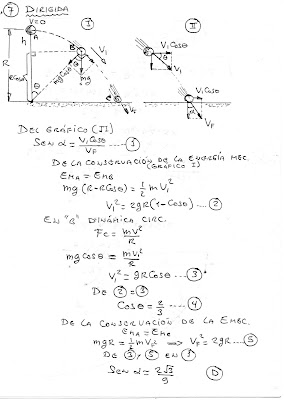 7 DIRIGIDA
V=0
I
II
A
h
R
RCosθ
θ
B
V₁
mgCosθ
mg
V₁Cosθ
θ
V₁
V₁Cosθ
α
V_F
DEL GRÁFICO (II)
Sen α = V₁Cosθ / V_F ...... 1
DE LA CONSERVACIÓN DE LA ENERGÍA MEC.
(GRÁFICO I)
E_MA = E_MB
mg(R-RCosθ) = 1/2 mV₁²
V₁² = 2gR(1-Cosθ) ..... 2
EN "B" DINÁMICA CIRC.
Fc = mV₁²/R
mgCosθ = mV₁²/R
V₁² = gRCosθ ..... 3
DE 2 = 3
Cosθ = 2/3 ..... 4
DE LA CONSERVACIÓN DE LA EMEC.
E_MA = E_MC
mgR = 1/2 mV_F² ⟹ V_F² = 2gR ..... 5
DE 3, 5 EN 1
Sen α = 2√3/9 D